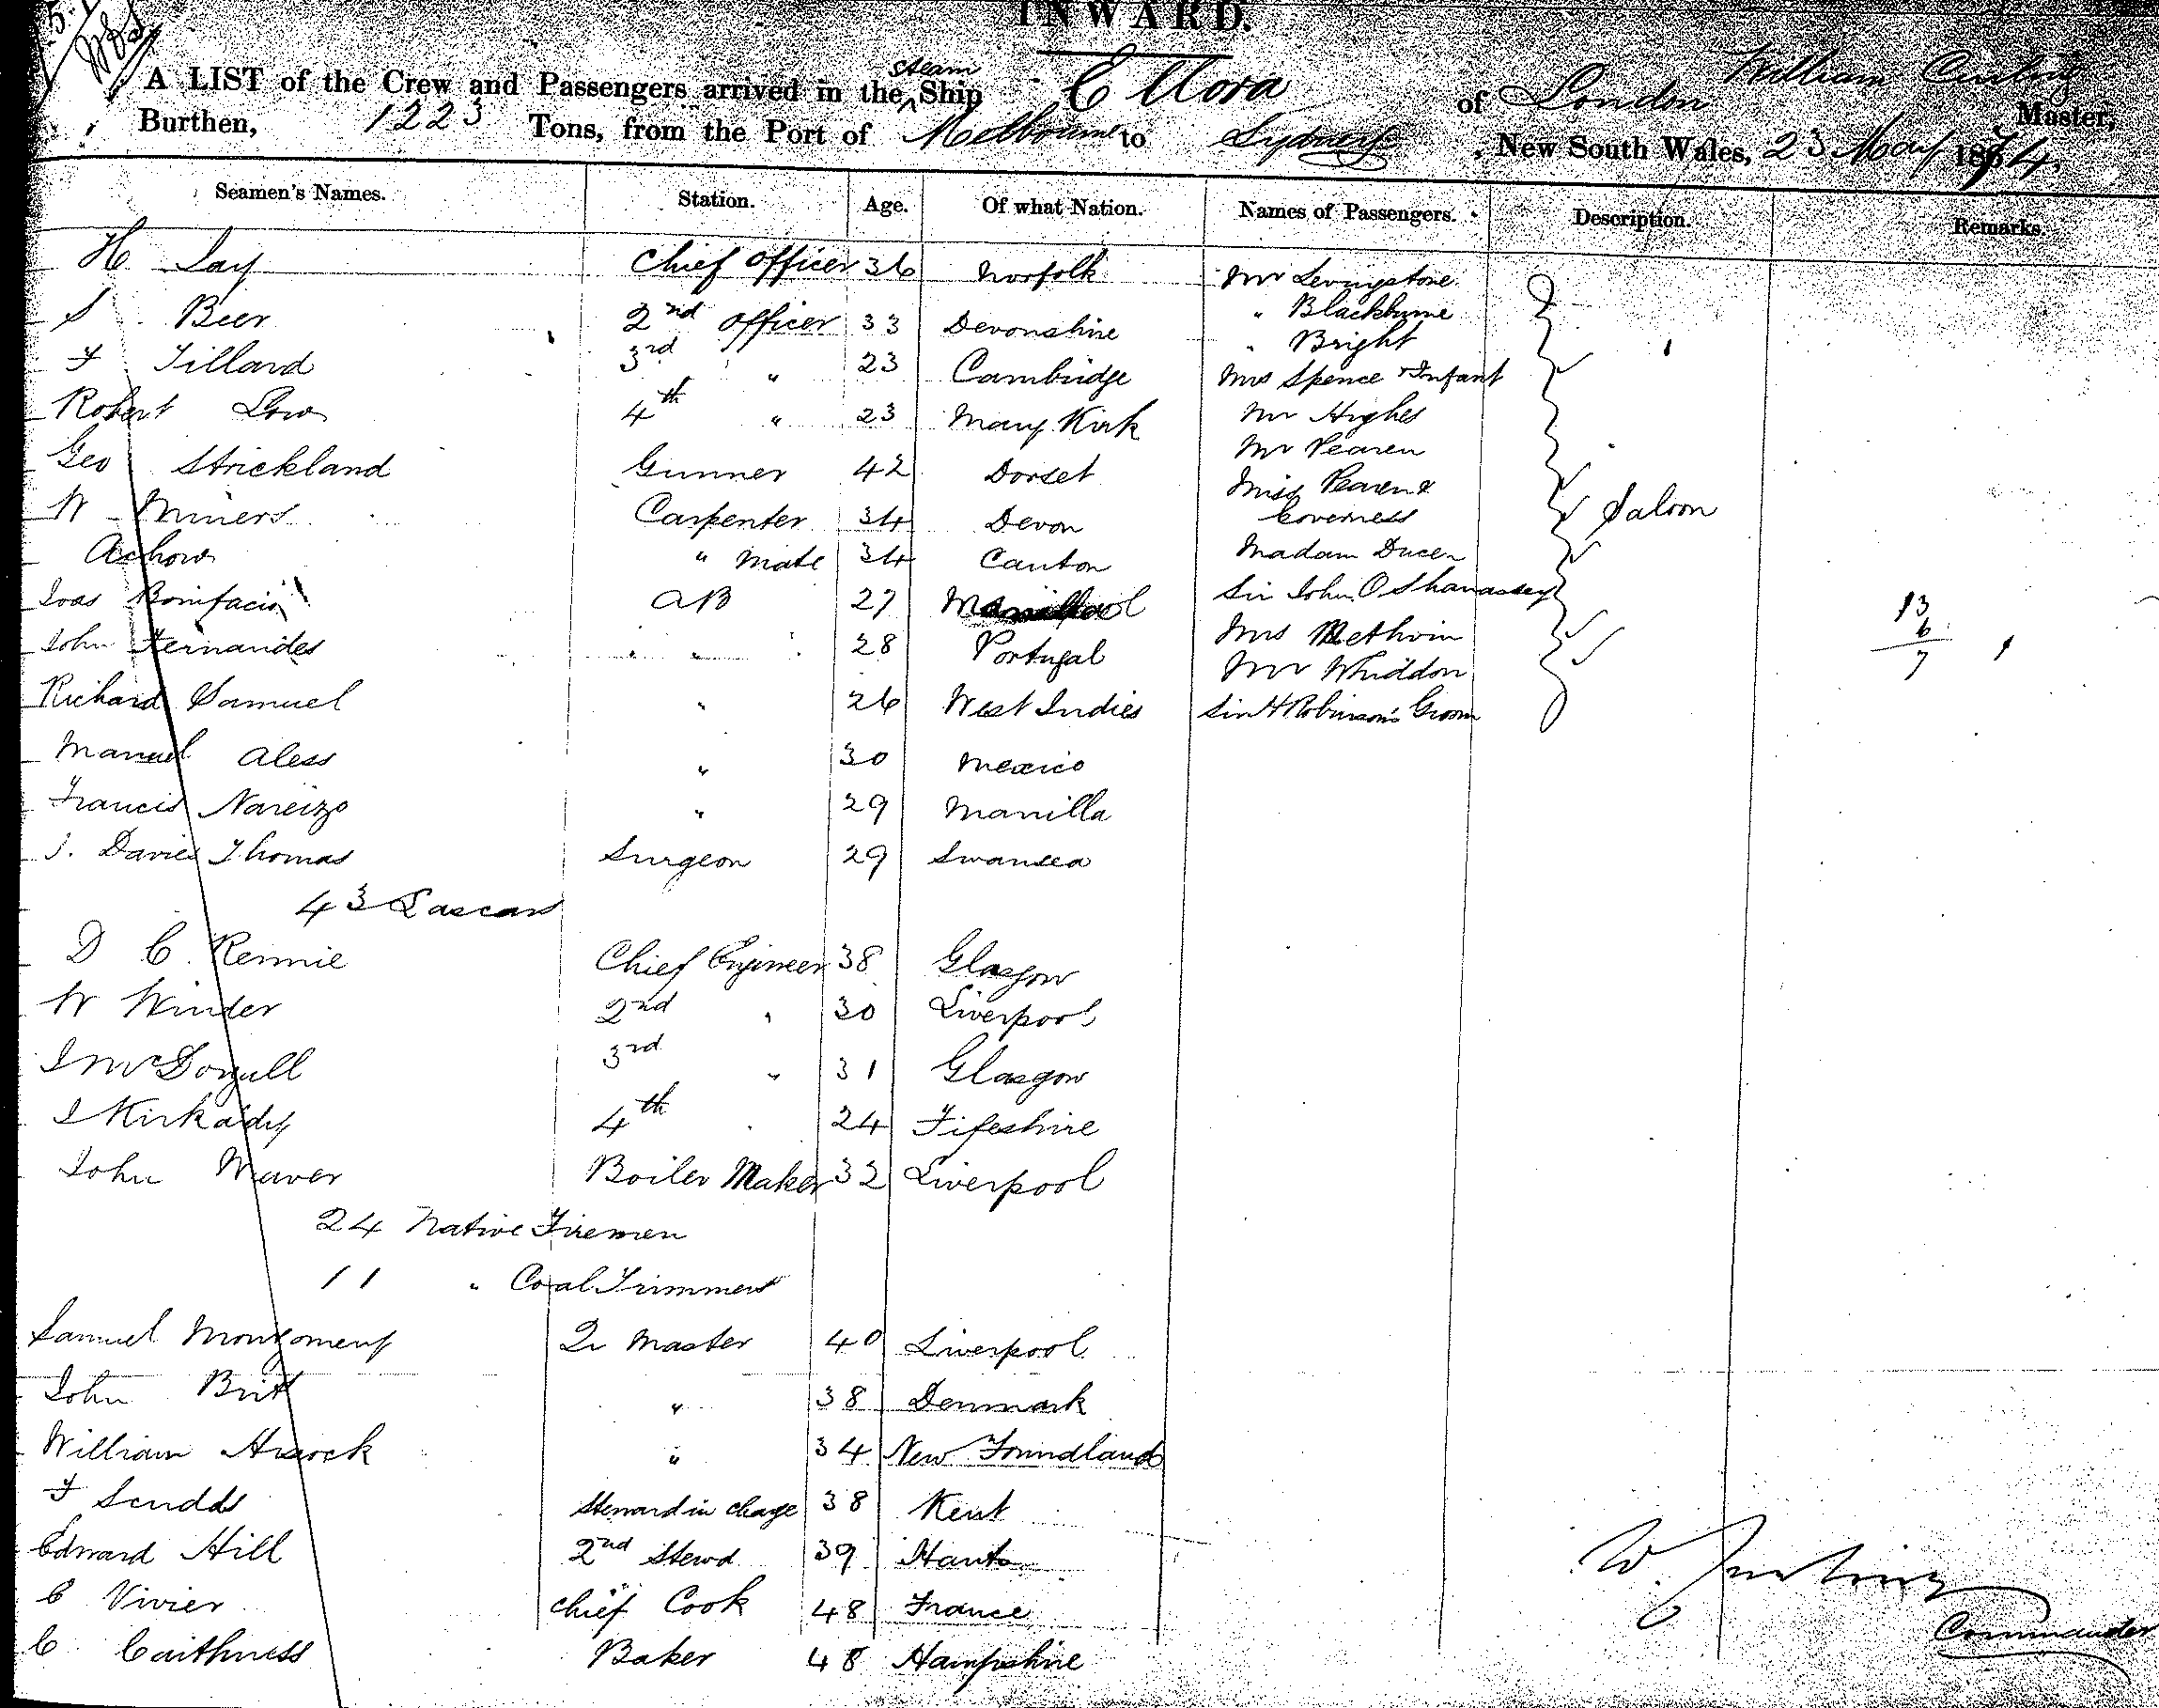 INWARD.
A LIST of the Crew and Passengers arrived in the steam Ship Ellora of London William Curling Master,
Burthen, 1223 Tons, from the Port of Melbourne to Sydney, New South Wales, 23 May 1874.
Seamen's Names. Station. Age. Of what Nation. Names of Passengers. Description. Remarks.
H Lay Chief Officer 36 Norfolk Mr Levingstone
S Beer 2nd Officer 33 Devonshire " Blackburne
" Bright
F Tillard 3rd " 23 Cambridge Mrs Spence & Infant
Robert Low 4th " 23 Mary Kirk Mr Hughes
Mr Pearen
Geo Strickland Gunner 42 Dorset Miss Pearen &
W Miners Carpenter 34 Devon Governess Saloon
Achow " Mate 34 Canton Madam Ducen
Joas Bonifacio AB 27 Sir John O Shanassey
13
6
7
John Fernandes " " 28 Portugal Mrs Methvin
Mr Whiddon
Richard Samuel " 26 West Indies Sir H Robinson's Groom
Manuel Aless " 30 Mexico
Francis Nareizo " 29 Manilla
J. Davies Thomas Surgeon 29 Swansea
43 Lascars
D C. Rennie Chief Engineer 38 Glasgow
W Winder 2nd " 30 Liverpool
J McDougall 3rd " 31 Glasgow
J Kirkaldy 4th " 24 Fifeshire
John Maver Boiler Maker 32 Liverpool
24 Native Firemen
11 " Coal Trimmers
Samuel Montgomery Qr Master 40 Liverpool
John Brit " 38 Denmark
William " 34 New Foundland
F Scudds Steward in charge 38 Kent
Edward Hill 2nd Stewd 39 Hants
C Vivier Chief Cook 48 France
C. Caithness Baker 48 Hampshire
W. Curling
Commander